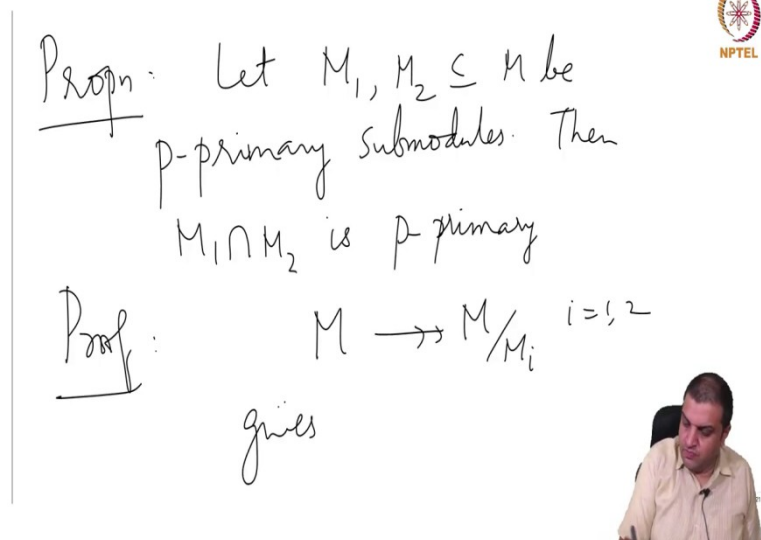 NPTEL
Propn: Let M₁, M₂ ⊆ M be
p-primary submodules. Then
M₁∩M₂ is p-primary
Proof: M ↠ M/Mᵢ i=1,2
gives